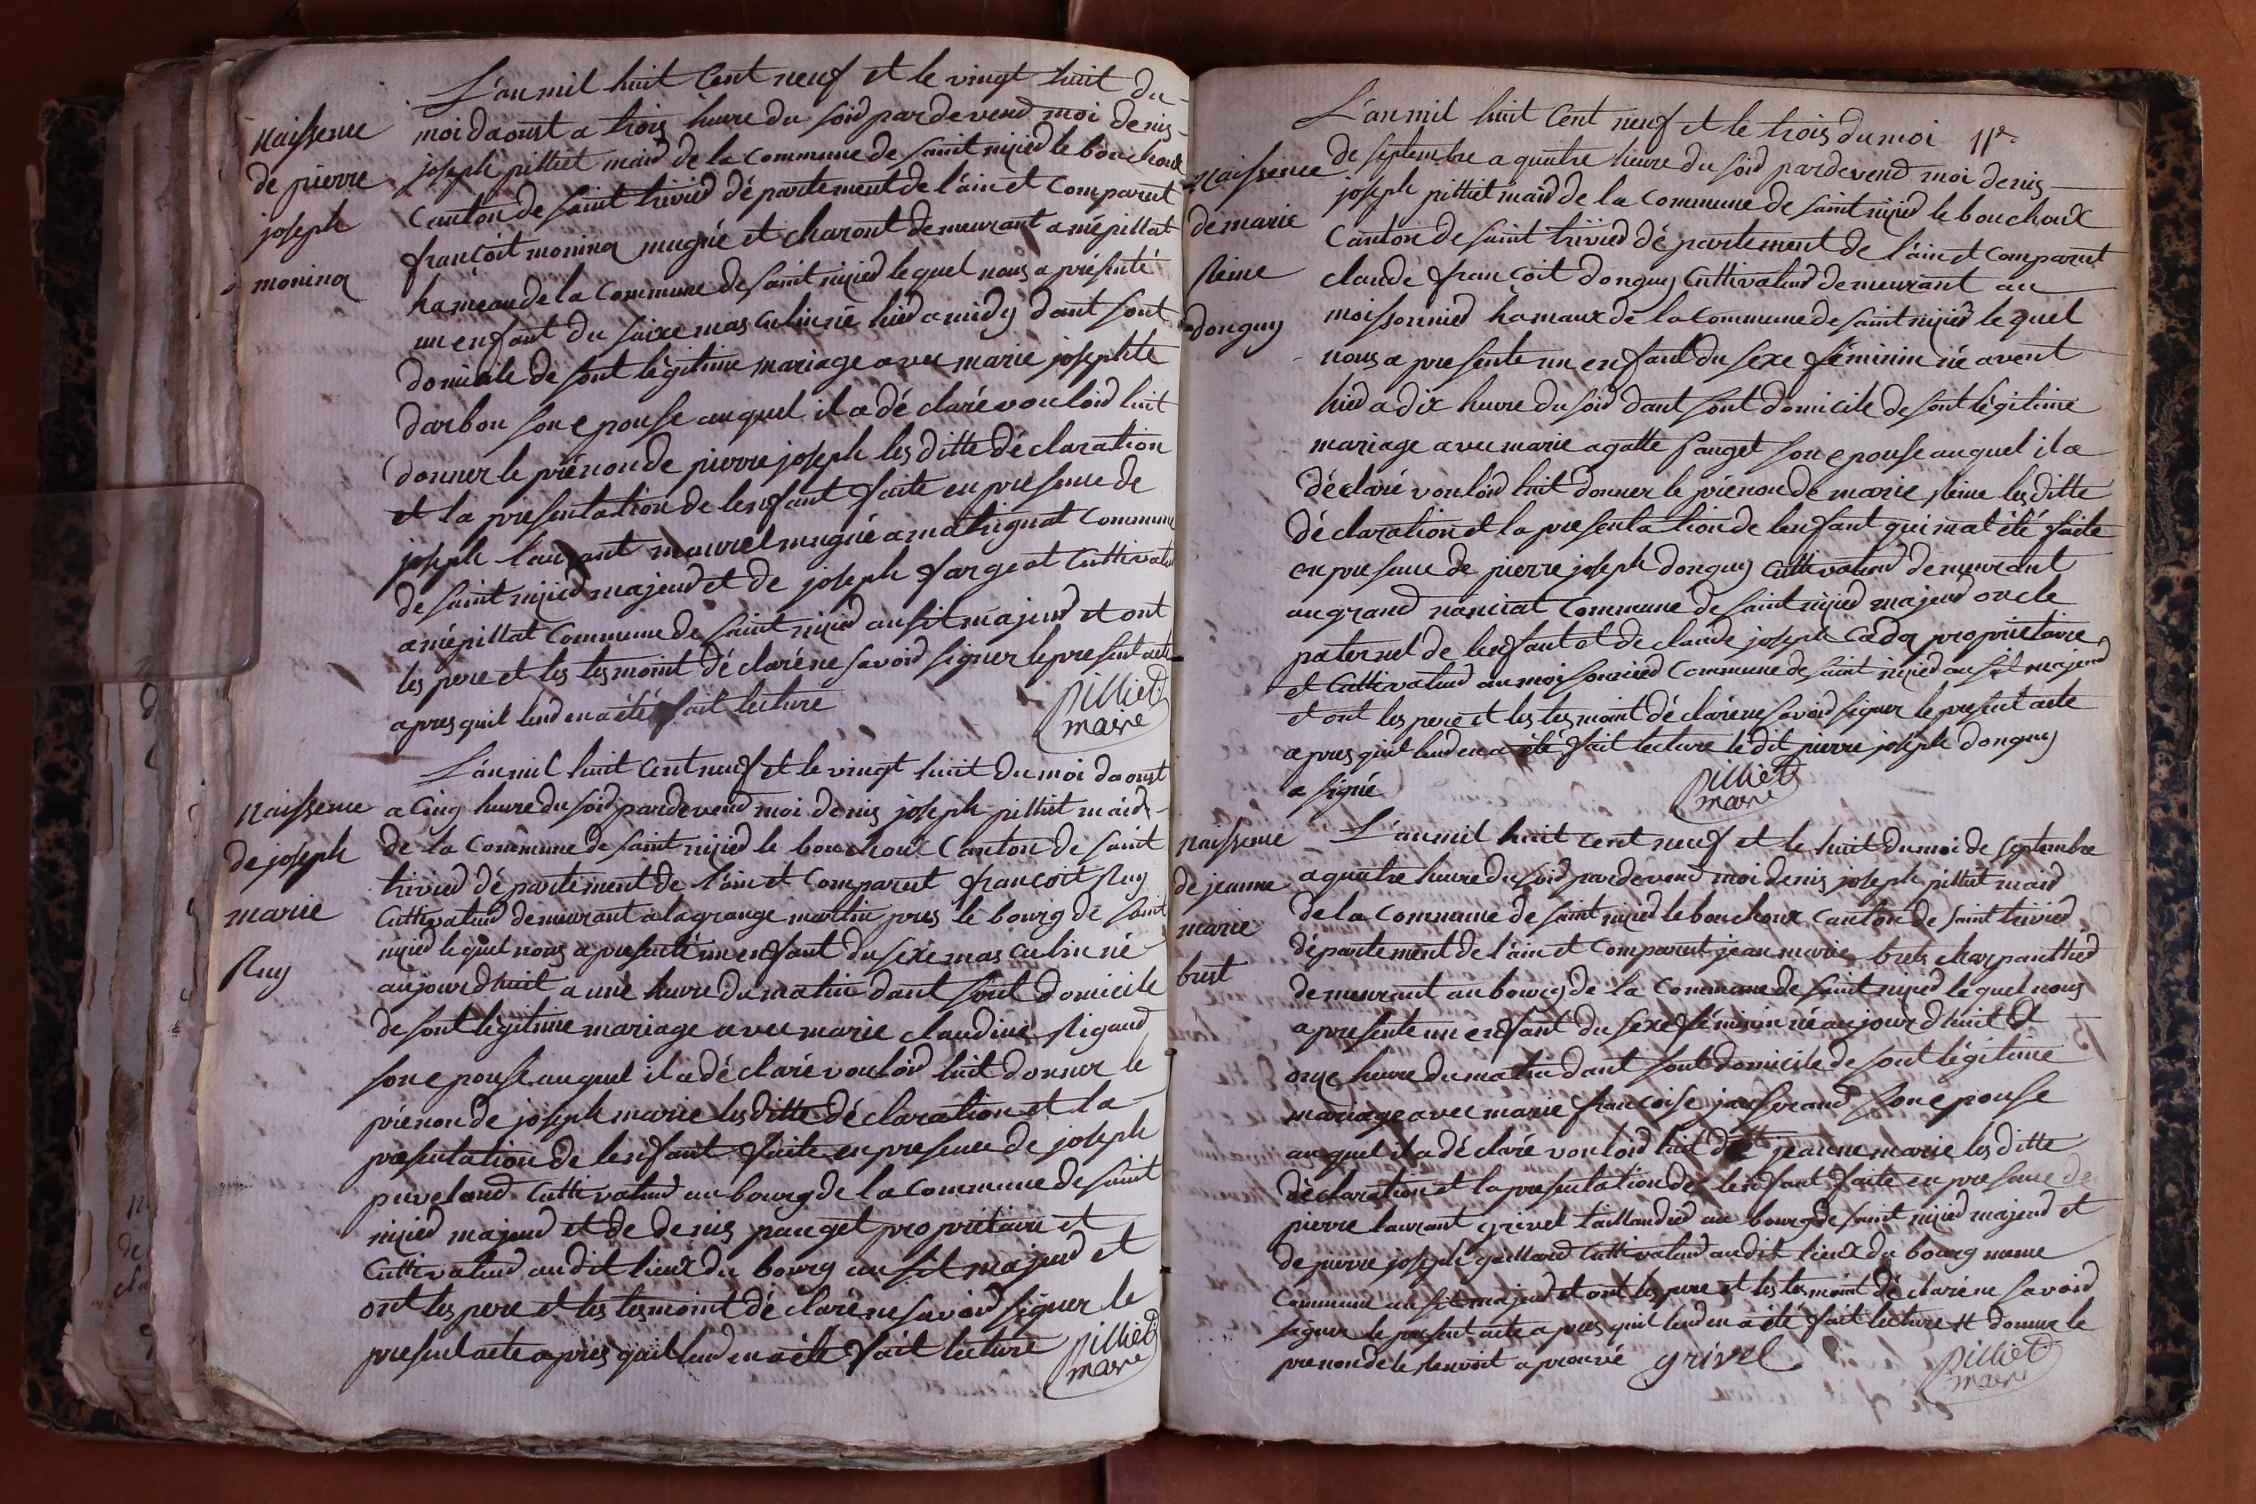 L'an mil huit Cent neuf et le vingt huit du
moi daoust a trois heure du soid pardevend moi denis
joseph pilliet maid de la commune de saint nizied le bouchoux
Canton de saint trivied département de l'ain et Comparut
françoit monina mugnié et charont demeurant a mépillat
hameau de la Commune de saint nizied lequel nous a présenté
un enfant du saixe masculin né hied a midy dant sont
domicile de sont légitime mariage avec marie josephte
darbon son epouse auquel il a déclaré vouloid luit
donner le prénon de pierre joseph les ditte déclaration
et la présentation de lenfant faite en presence de
joseph laurant mourel mugnié a matrignat commune
de saint nizied majeud et de joseph fargeot Cuttivateud
a mépillat Commune de saint nizied ausit majeud et ont
les pere et les tesmoint déclaré ne savoid signer le present acte
apres quil leud en a été fait lecture
pilliet
maire
naissence
de pierre
joseph
monina
L'an mil huit Cent neuf et le vingt huit du moi daoust
a Cinq heure du soid pardevend moi denis joseph pilliet maid
de la Commune de saint nizied le bouchoux Canton de saint
trivied département de l'ain et Comparut françoit Ruy
Cuttivateud demeurant a la grange martin pres le bourg de saint
nizied lequel nous a presenté un enfant du sexe masculin né
aujourdhuit a une heure du matin dant sont domicile
de sont légitime mariage avec marie claudine Rigaud
son epouse auquel il a déclaré vouloid luit donner le
prénon de joseph marie les ditte déclaration et la
présentation de lenfant faite en presence de joseph
puveland Cuttivateud au bourg de la commune de saint
nizied majeud et de denis pauget propriétaire et
Cuttivateud audit lieux du bourg ausit majeud et
ont les pere et les tesmoint déclaré ne savoid signer le
present acte apres quil leud en a été fait lecture
pilliet
maire
naissence
de joseph
marie
Ruy
L'an mil huit Cent neuf et le trois du moi
de septembre a quatre heure du soid pardevend moi denis
joseph pilliet maid de la commune de saint nizied le bouchoux
Canton de saint trivied département de l'ain et Comparut
claude françoit donguy Cuttivateud demeurant au
moissonnied hamaux de la Commune de saint nizied lequel
nous a presente un enfant du sexe féminin né avent
hied a dix heure du soid dant sont domicile de sont légitime
mariage avec marie agatte pauget son epouse auquel il a
déclaré vouloid luit donner le prénon de marie Reine les ditte
déclaration et la presentation de lenfant qui mat été faite
en presence de pierre joseph donguy Cuttivateud demeurant
au grand nanciat Commune de saint nizied majeud oncle
paternel de lenfant et de claude joseph Cada propriétaire
et Cuttivateud au moissonnied Commune de saint nizied ausit majeud
et ont les pere et les tesmoint déclaré ne savoid signer le present acte
apres quil leud en a été fait lecture le dit pierre joseph donguy
a signé
pilliet
maire
naissence
de marie
Reine
donguy
L'an mil huit Cent neuf et le huit du moi de septembre
a quatre heure du soid pardevend moi denis joseph pilliet maid
de la Commune de saint nizied le bouchoux Canton de saint trivied
département de l'ain et Comparut jean marie brets charpanttied
demeurant au bourg de la Commune de saint nizied lequel nous
a presente un enfant du sexe féminin né aujourdhuit a
onze heure du matin dant sont domicile de sont légitime
mariage avec marie françoise jasserand son epouse
auquel il a déclaré vouloid luit jeanne marie les ditte
déclaration et la presentation de lenfant faite en presence de
pierre laurant grivel taillandied au bourg de saint nizied majeud et
de pierre joseph gaillard Cuttivateud audit lieux du bourg meme
Commune ausit majeud et ont les pere et les tesmoint déclaré ne savoid
signer le present acte apres quil leud en a été fait lecture # donner le
prenon de le renvoit aprouvé grivel
pilliet
maire
naissence
de jeanne
marie
bret